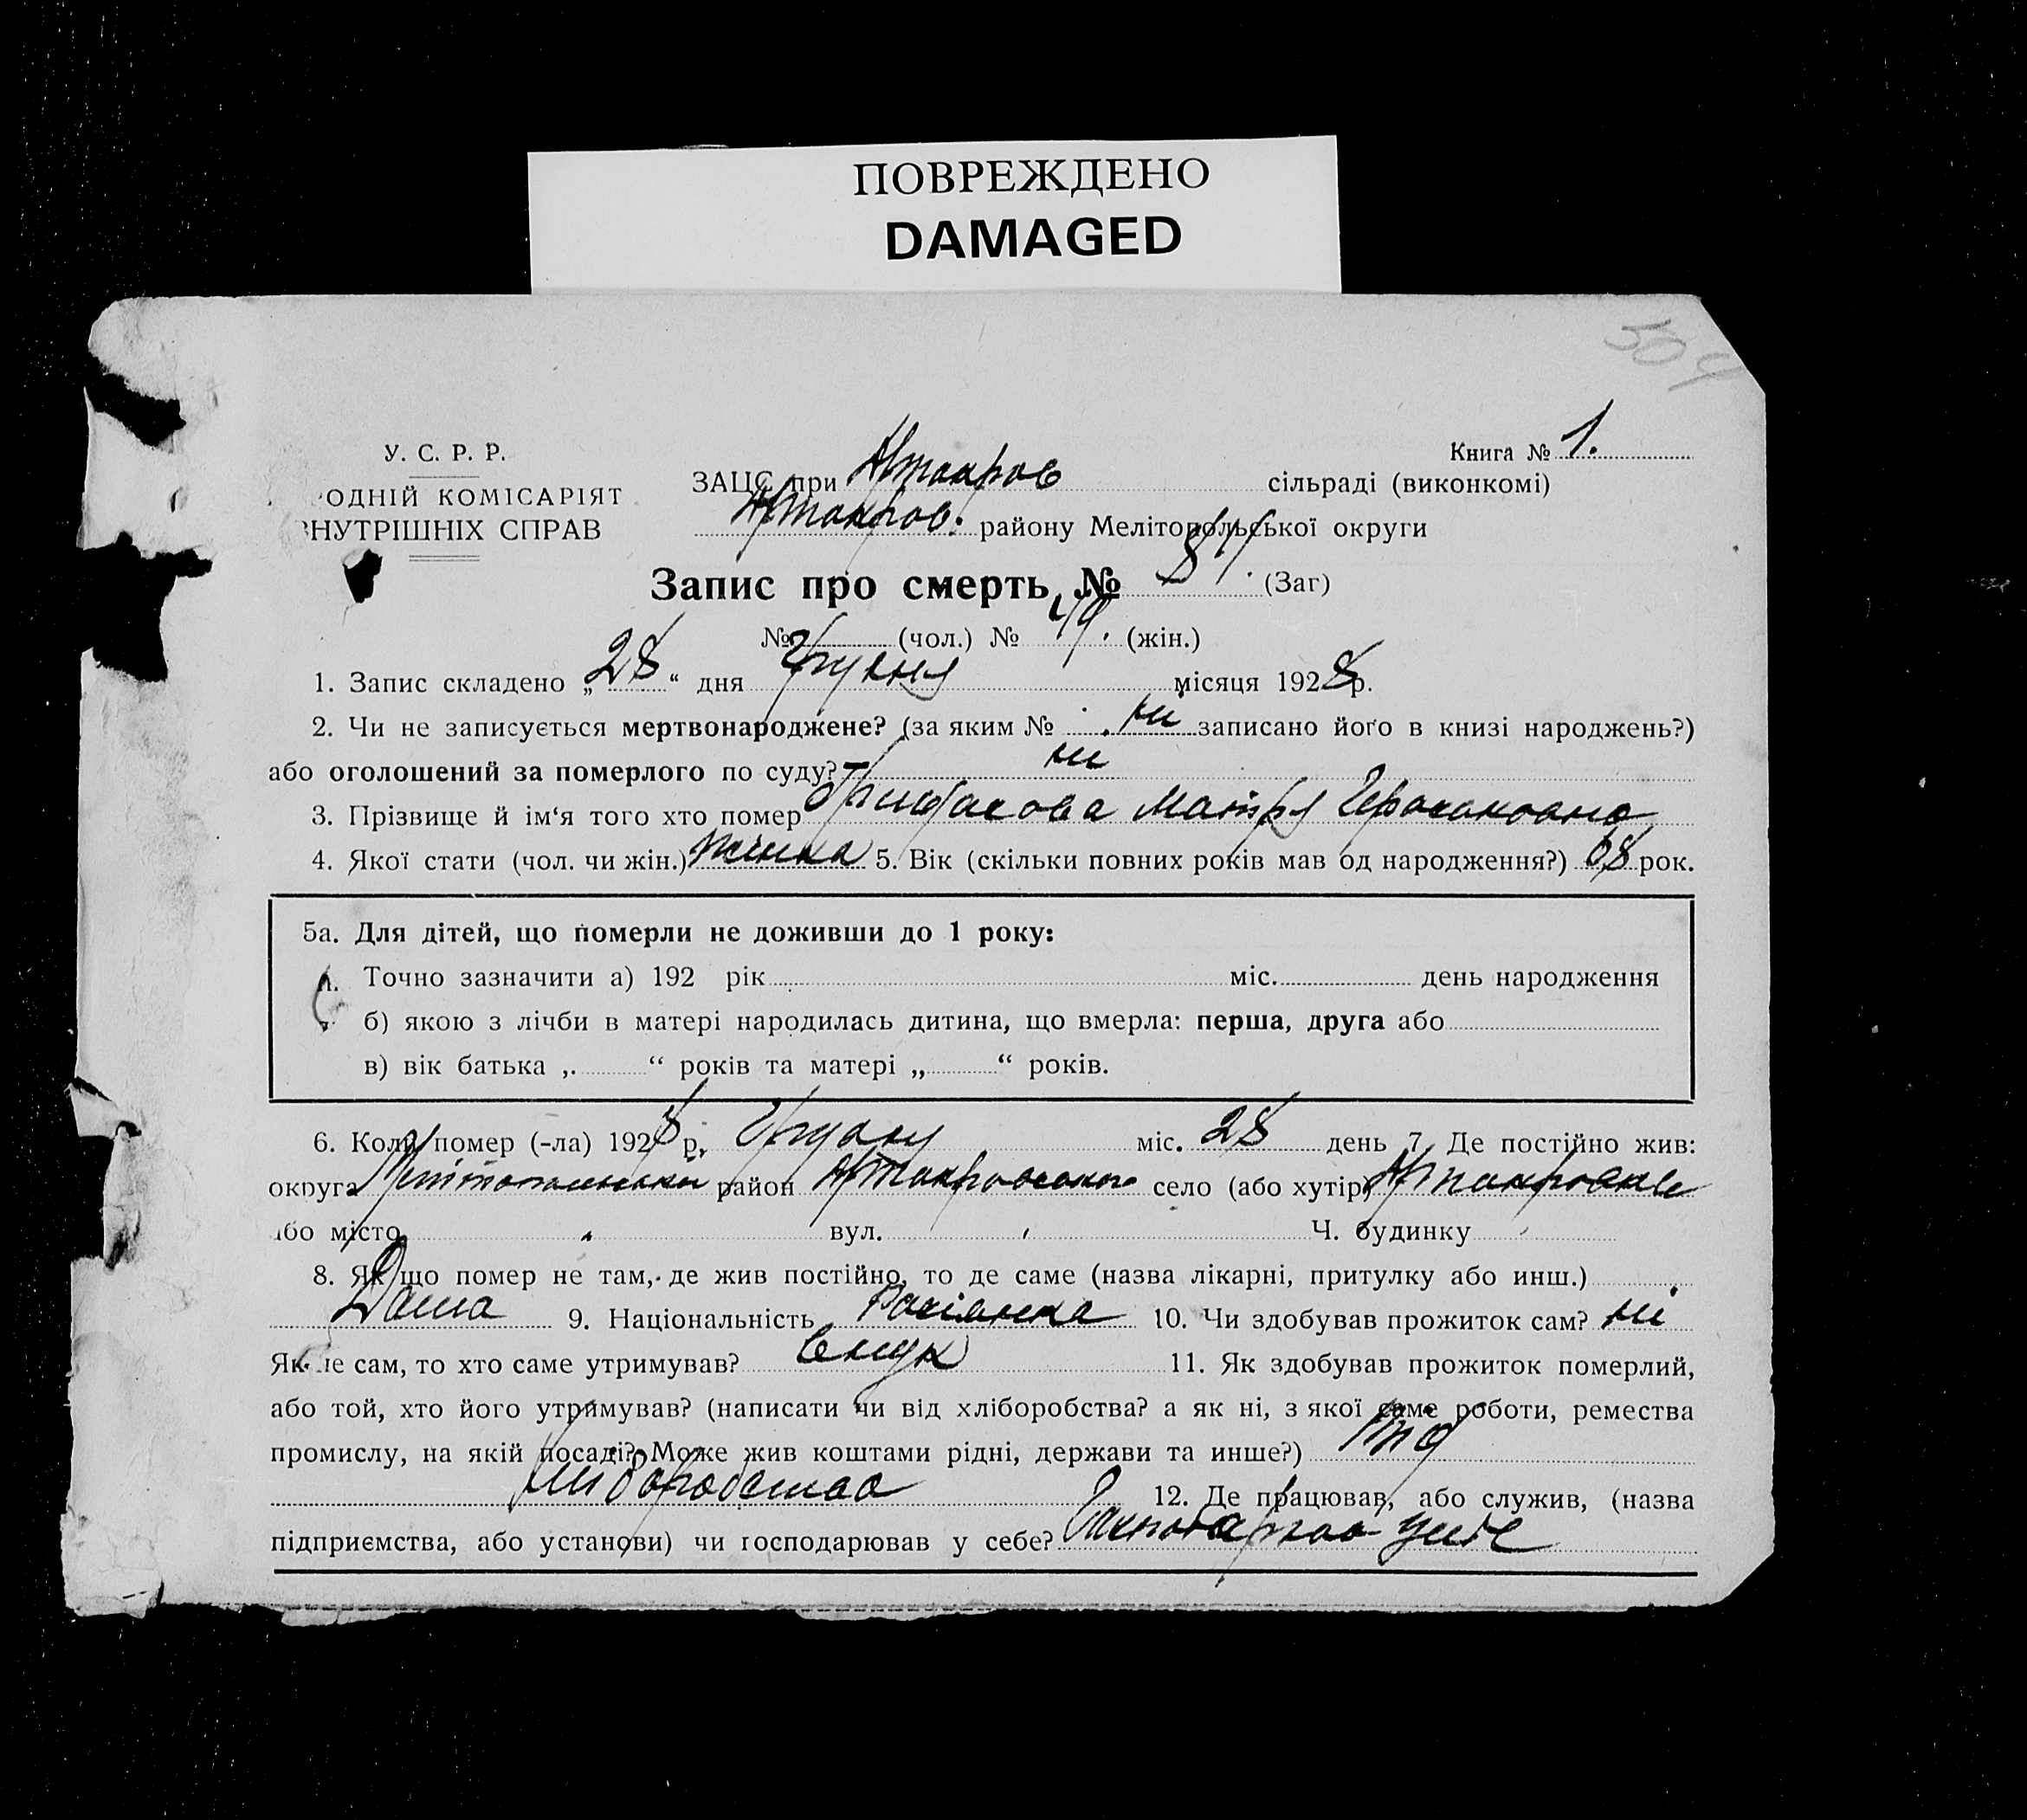 ПОВРЕЖДЕНО
DAMAGED
504
У. С. Р. Р.
Книга № 1.
ЗАЦС при сільраді (виконкомі)
ОДНІЙ КОМІСАРІЯТ
НУТРІШНІХ СПРАВ
району Мелітопольської округи
Запис про смерть № (Заг)
№ (чол.) № 49. (жін.)
1. Запис складено „28“ дня Грудня місяця 1928 р.
2. Чи не записується мертвонароджене? (за яким № ні записано його в книзі народжень?)
або оголошений за померлого по суду? ні
3. Прізвище й ім‘я того хто помер
4. Якої стати (чол. чи жін.) жінка 5. Вік (скільки повних років мав од народження?) 68 рок.
5а. Для дітей, що померли не доживши до 1 року:
Точно зазначити а) 192 рік міс. день народження
б) якою з лічби в матері народилась дитина, що вмерла: перша, друга або
в) вік батька „ “ років та матері „ “ років.
6. Коли помер (-ла) 1928 р. міс. 28 день 7. Де постійно жив:
округа район село (або хутір)
або місто вул. Ч. будинку
8. Як що помер не там, де жив постійно, то де саме (назва лікарні, притулку або инш.)
Дома 9. Національність Росіянка 10. Чи здобував прожиток сам? ні
Як не сам, то хто саме утримував? 11. Як здобував прожиток померлий,
або той, хто його утримував? (написати чи від хліборобства? а як ні, з якої саме роботи, ремества
промислу, на якій посаді? Може жив коштами рідні, держави та инше?) від
хліборобства 12. Де працював, або служив, (назва
підприємства, або установи) чи господарював у себе?